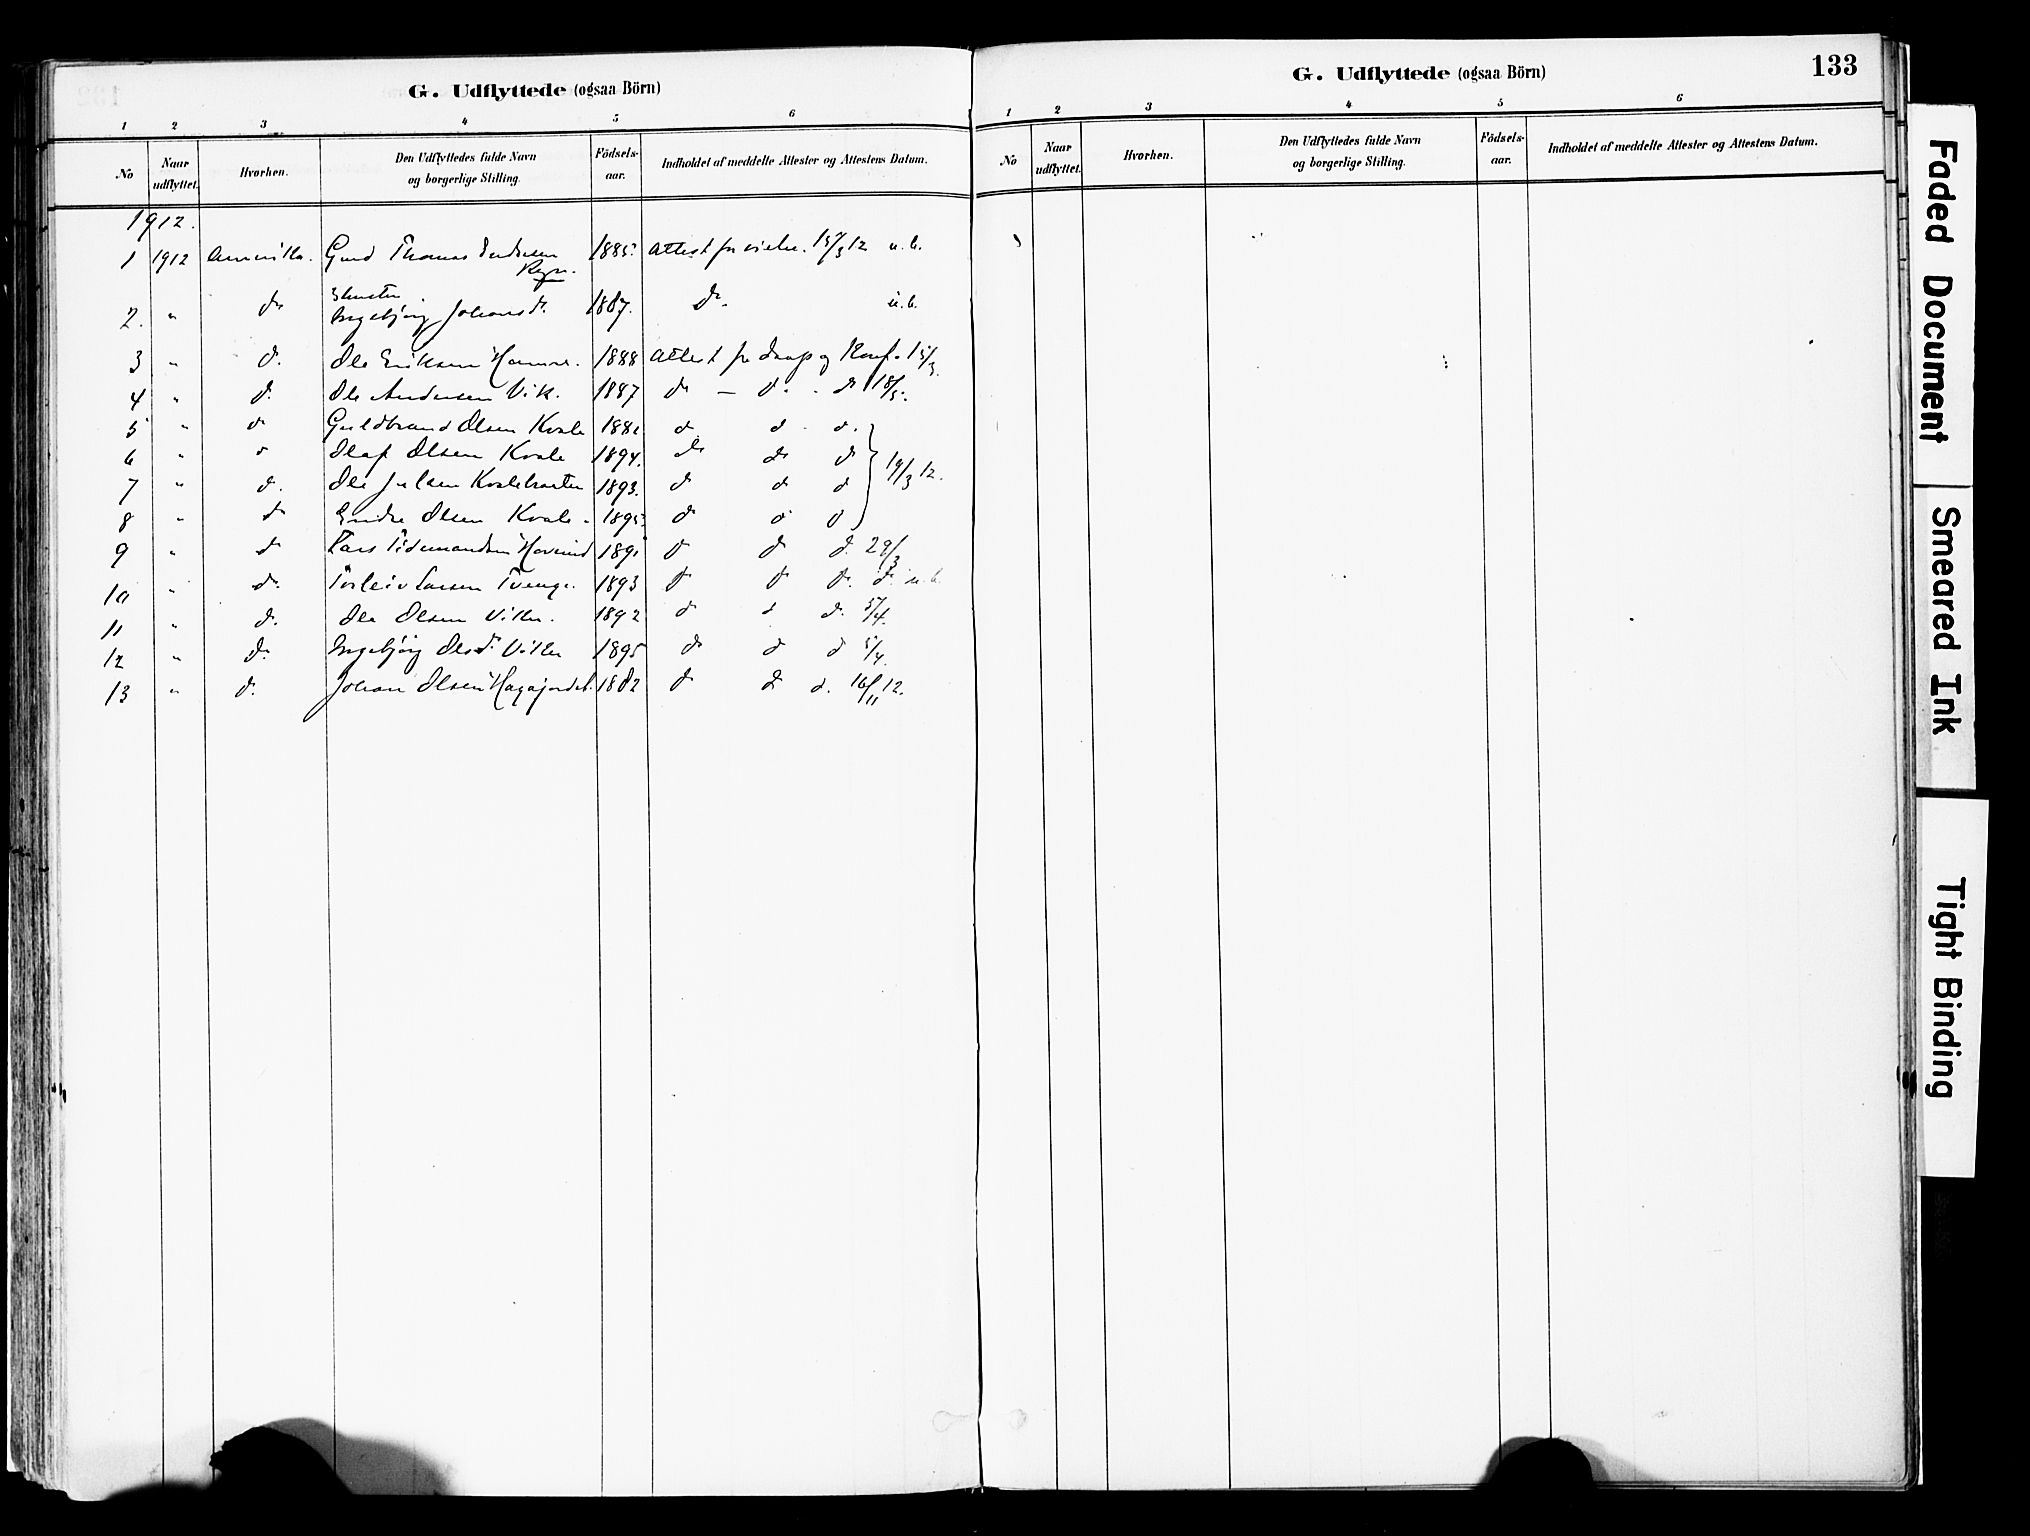 G. Udflyttede (ogsaa Börn)
1 2 3 4 5 6
No Naar udflyttet. Hvorhen. Den Udflyttedes fulde Navn og borgerlige Stilling. Födsels-aar. Indholdet af meddelte Attester og Attestens Datum.
1912.
1 1912 Amerika. Thomas 1885. Attest for vielse. 15/3 12 u.b.
2. " do Ingebjörg Johansd. 1887. do. u.b.
3 " d. Ole Eriksen 1888 Attest for daap og Konf. 15/3.
4 " d. Ole Andersen Vik. 1887 do — do - do 18/3.
5 " do Guldbrand Olsen Kvale d d d.
6 " d Olaf Olsen Kvale 1894. do do do
7 " d. Ole 1893. d d d 19/3 12.
8 " d Endre Olsen Kvale. 1895. d d d
9 " d Lars Tidemandsen d d d. 29/3
10 " d. Torleiv Larsen Tvenge. 1893 d d d. d. u.b.
11 " d. Ole Olsen 1892 d d d. 5/4.
12 " d. Ingebjörg Olsd. 1895 d d d 5/4.
13 " d. Johan Olsen Hagajordet. 1882 d d d. 16/11 12.
G. Udflyttede (ogsaa Börn)
133
1 2 3 4 5 6
No Naar udflyttet. Hvorhen. Den Udflyttedes fulde Navn og borgerlige Stilling. Födsels-aar. Indholdet af meddelte Attester og Attestens Datum.
Faded Document
Smeared Ink
Tight Binding